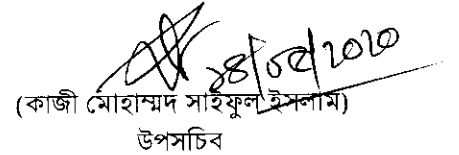 ১৪/০৫/২০২০
(কাজী মোহাম্মদ সাইফুল ইসলাম)
উপসচিব